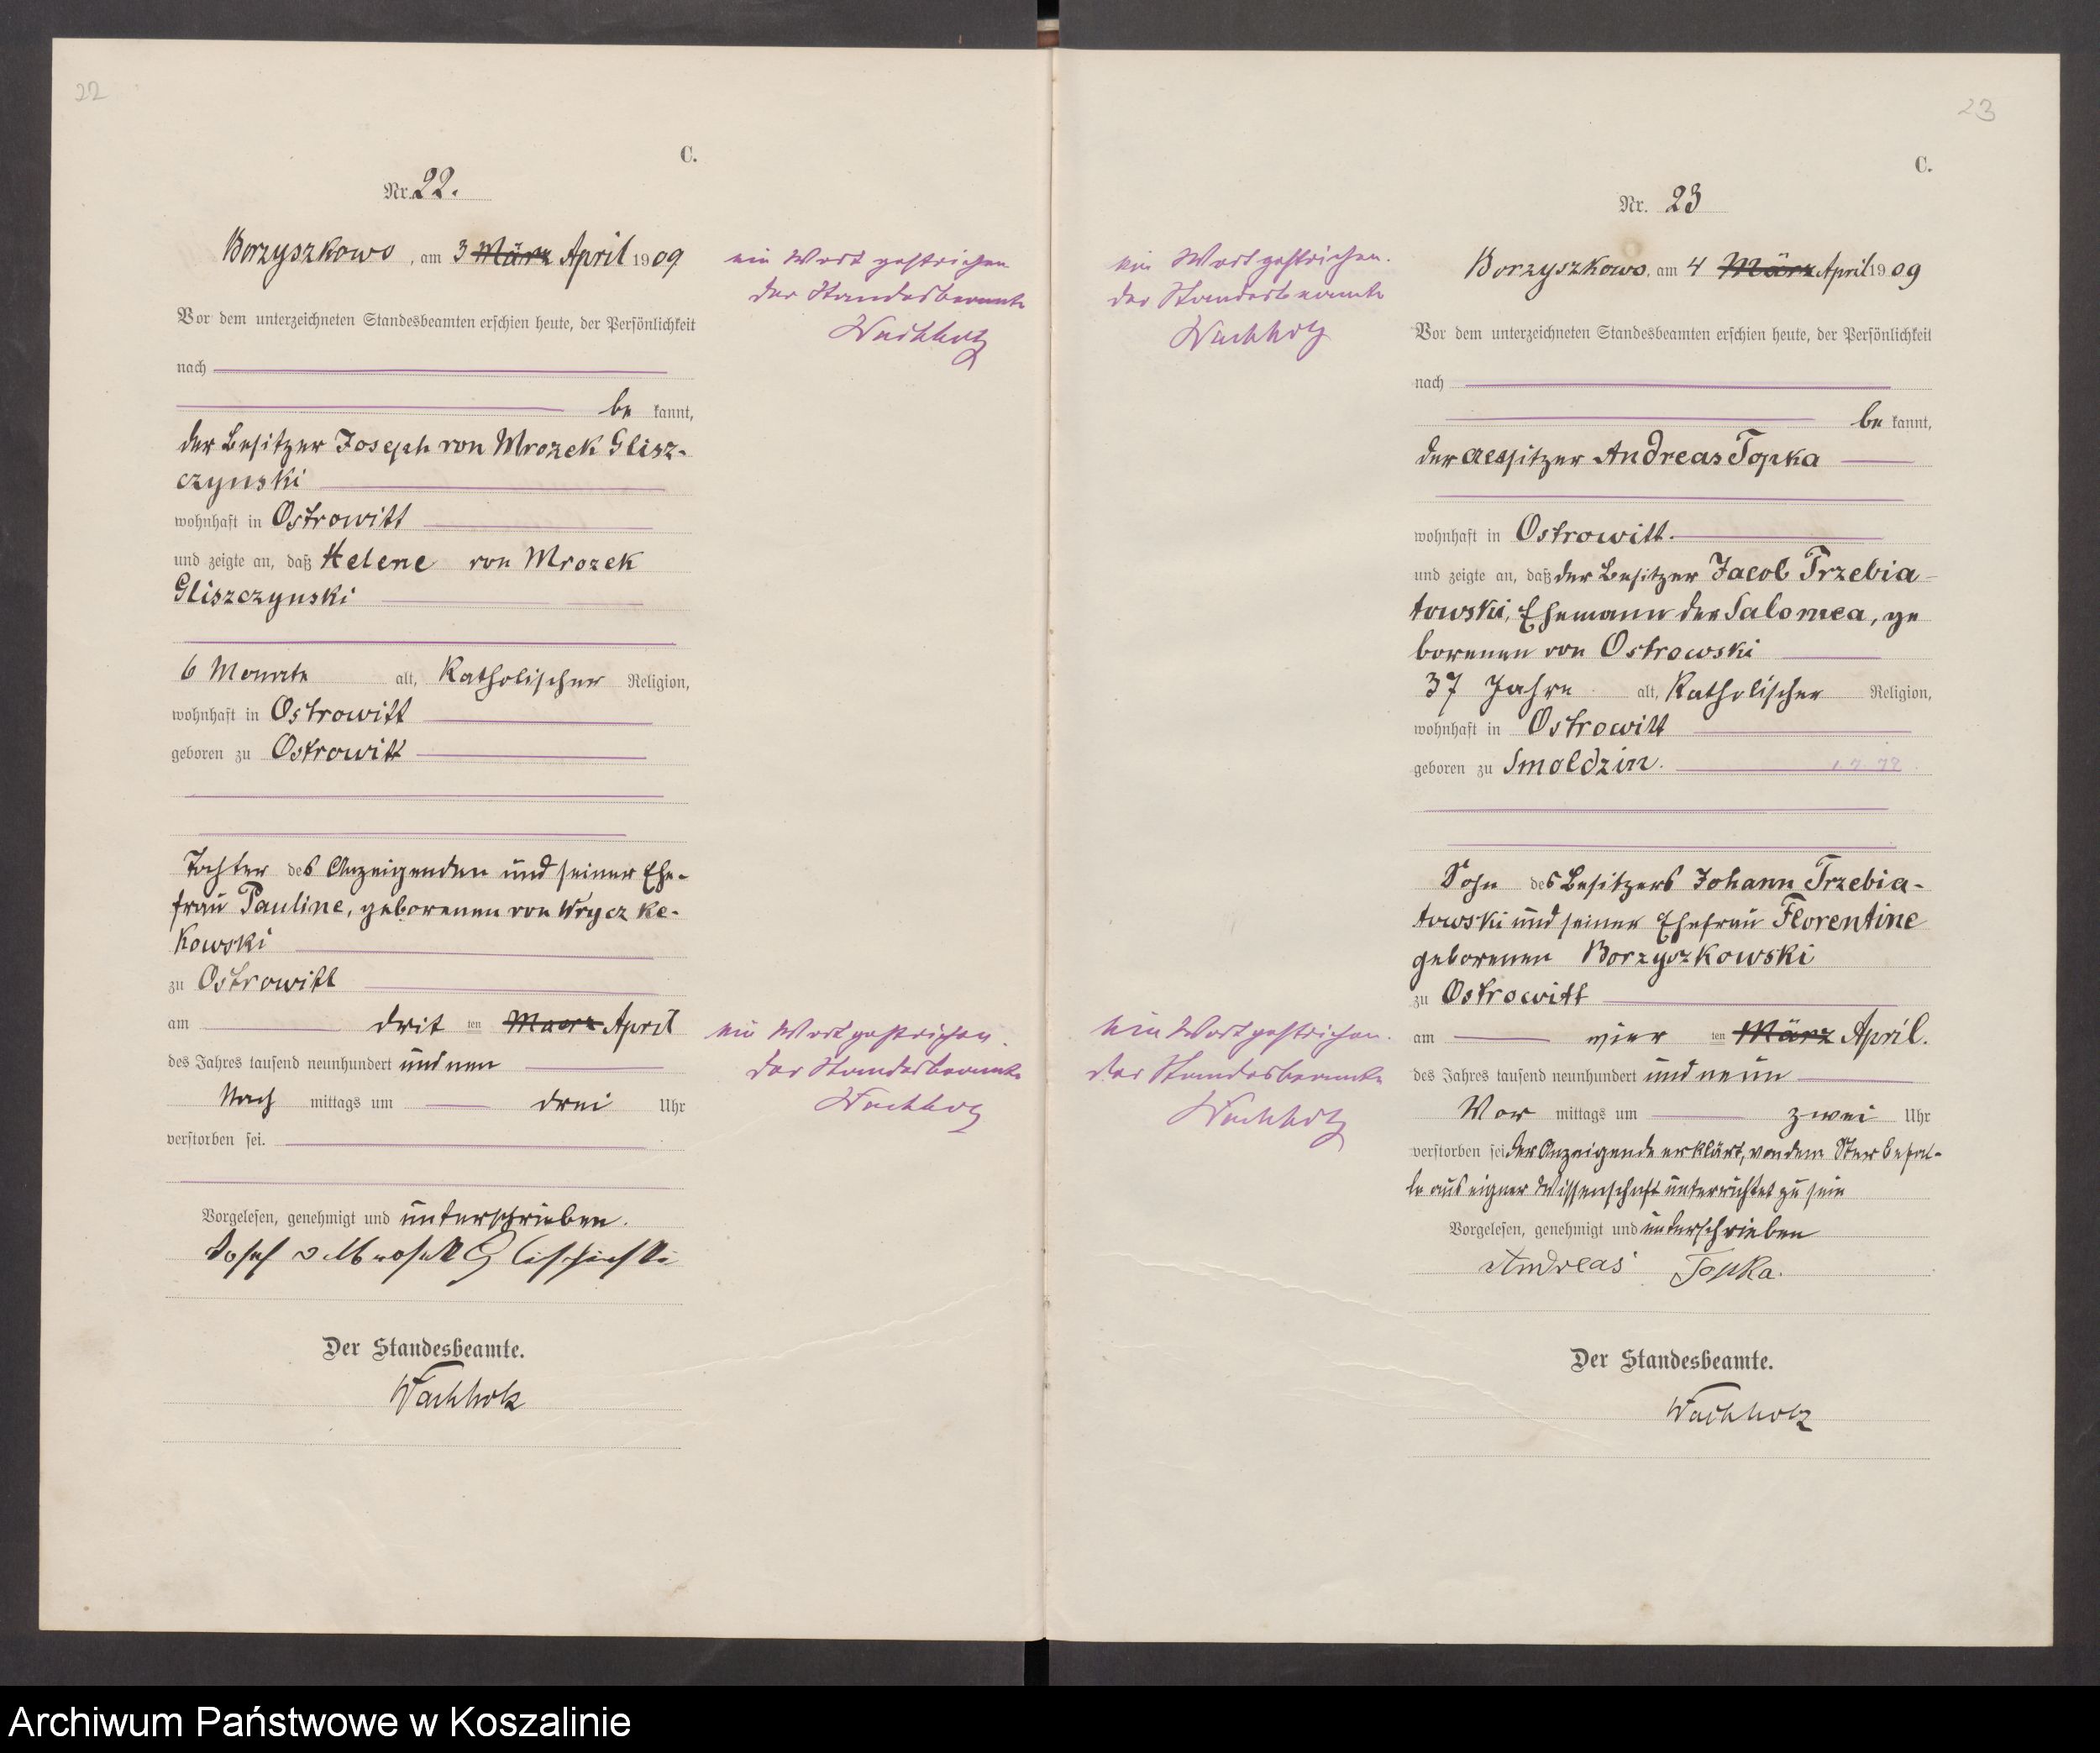 22
C.
Nr. 22.
Borzyszkowo, am 3 März April 1909
Vor dem unterzeichneten Standesbeamten erschien heute, der Persönlichkeit
nach
be kannt,
der Besitzer Joseph von Mrozek Glisz-
czynski
wohnhaft in Ostrowitt
und zeigte an, daß Helene von Mrozek
Gliszczynski
6 Monate alt, Katholischer Religion,
wohnhaft in Ostrowitt
geboren zu Ostrowitt
Tochter des Anzeigenden und seiner Ehe-
frau Pauline, geborenen von Wrycz Re-
kowski
zu Ostrowitt
am drit ten Maerz April
des Jahres tausend neunhundert und neun
Nach mittags um drei Uhr
verstorben sei.
Vorgelesen, genehmigt und unterschrieben.
Josef v Mrosek Glischinski
Der Standesbeamte.
Wachholz
ein Wort gestrichen
der Standesbeamte
Wachholz
ein Wort gestrichen.
der Standesbeamte
Wachholz
23
C.
Nr. 23
Borzyszkowo, am 4 März April 1909
Vor dem unterzeichneten Standesbeamten erschien heute, der Persönlichkeit
nach
be kannt,
der Besitzer Andreas Topka
wohnhaft in Ostrowitt.
und zeigte an, daß der Besitzer Jacob Trzebia-
towski, Ehemann der Salomea, ge
borenen von Ostrowski
37 Jahre alt, Katholischer Religion,
wohnhaft in Ostrowitt
geboren zu Smoldzin.
Sohn des Besitzers Johann Trzebia-
towski und seiner Ehefrau Florentine
geborenen Borzyszkowski
zu Ostrowitt
am vier ten März April.
des Jahres tausend neunhundert und neun
Vor mittags um zwei Uhr
verstorben sei der Anzeigende erklärt, von dem Sterbefal-
le aus eigner Wissenschaft unterrichtet zu sein
Vorgelesen, genehmigt und unterschrieben
Andreas Topka.
Der Standesbeamte.
Wachholz
ein Wort gestrichen.
der Standesbeamte
Wachholz
ein Wort gestrichen.
der Standesbeamte
Wachholz
Archiwum Państwowe w Koszalinie